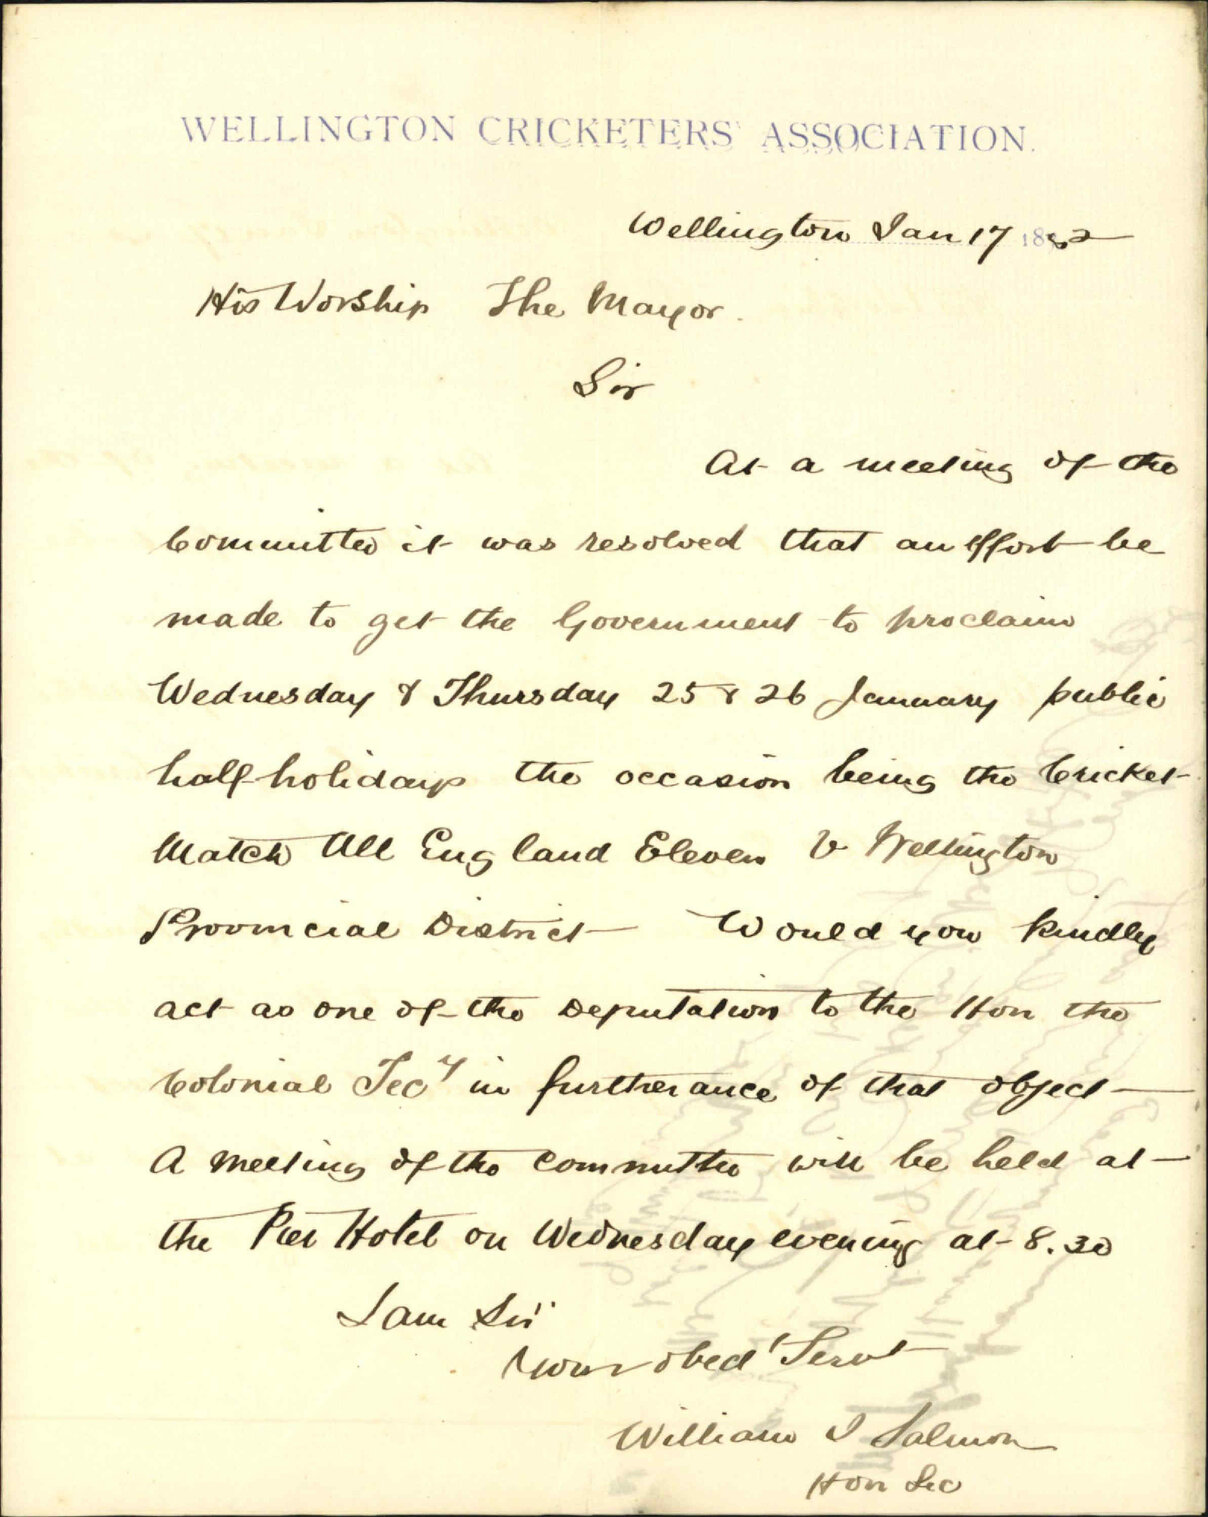 WELLINGTON CRICKETERS' ASSOCIATION.
Wellington Jan 17 1882
His Worship The Mayor.
Sir
At a meeting of the
Committee it was resolved that an effort be
made to get the Government to proclaim
Wednesday & Thursday 25 & 26 January public
half-holidays the occasion being the Cricket
Match All England Eleven V Wellington
Provincial District Would you kindly
act as one of the Deputation to the Hon the
Colonial Secy in furtherance of that object
A meeting of the committee will be held at
the Pier Hotel on Wednesday evening at 8.30
I am Sir
Your obedt Servt
William J Salmon
Hon Sec